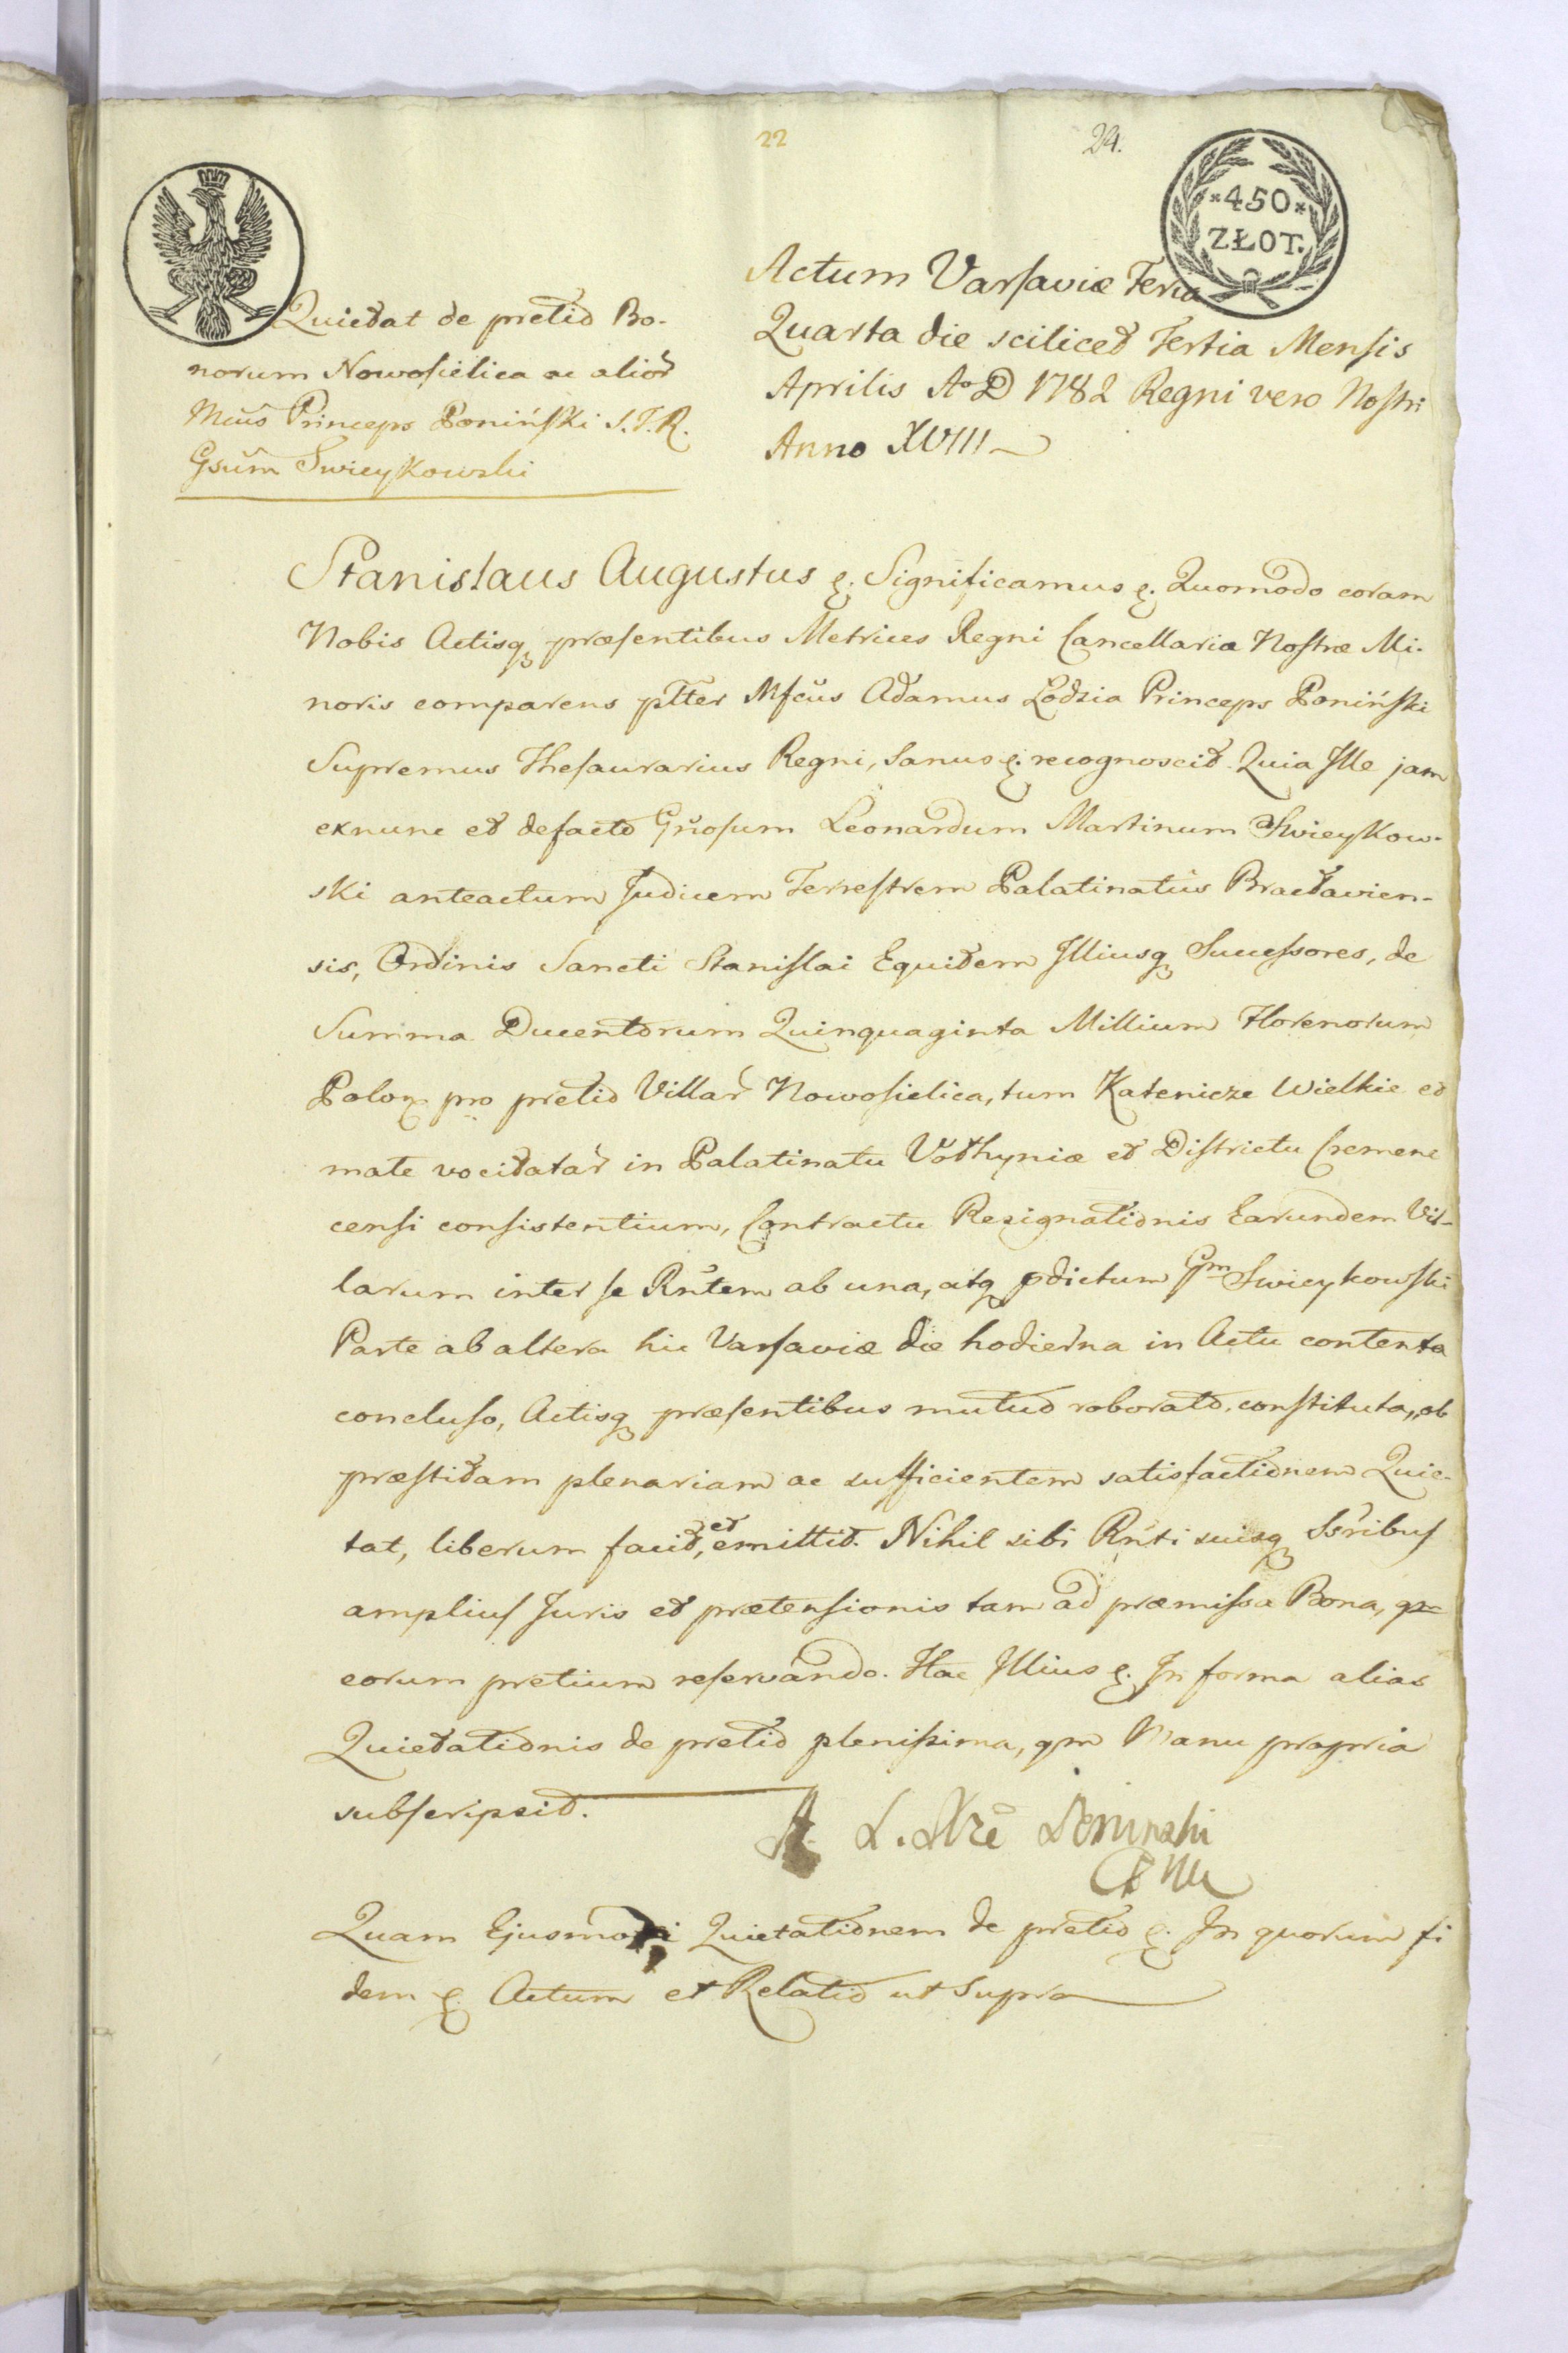 22
24.
*450*
ZŁOT.
Quietat de pretio Bo-
norum Nowosielica ac alior
Mcus Princeps Poninski S.T.R.
Gsum Swieykowski
Actum Varsaviæ Feria
Quarta die scilicet Tertia Mensis
Aprilis Ao D 1782 Regni vero Nostri
Anno XVIII
Stanislaus Augustus &. Significamus &. Quomodo coram
Nobis Actisq præsentibus Metrices Regni Cancellariæ Nostræ Mi-
noris comparens pltter Mfcus Adamus Lodzia Princeps Poniński
Supremus Thesaurarius Regni, Sanus &. recognoscit. Quia Ille jam
exnunc et defacto Gnosum Leonardum Martinum Swieykow-
ski anteactum Judicem Terrestrem Palatinatus Braclavien-
sis, Ordinis Sancti Stanislai Equitem Illiusq Successores, de
Summa Ducentorum Quinquaginta Millium Florenorum
Polon pro pretio Villar Nowosielica, tum Katenicze Wielkie et
mate vocitatar in Palatinatu Volhyniæ et Districtu Cremene
censi consistentium, Contractu Resignationis Earundem Vil-
larum inter se Rntem ab una, atq pdictum Gm Swieykowski
Parte ab altera hic Varsaviæ die hodierna in Actu contenta
concluso, Actisq præsentibus mutuo roborato, constituta, ob
præstitam plenariam ac sufficientem satisfactionem Quie-
tat, liberum facit, et emittit. Nihil sibi Rnti suisq Ssribus
amplius Juris et prætensionis tam ad præmissa Bona, qm
eorum pretium reservando. Hac Illius &. In forma alias
Quietationis de pretio plenissima, qm Manu propria
subscripsit.
A L. Xże Poninski
Quam Ejusmodi Quietationem de pretio &. In quorum fi
dem &. Actum et Relatio ut Supra